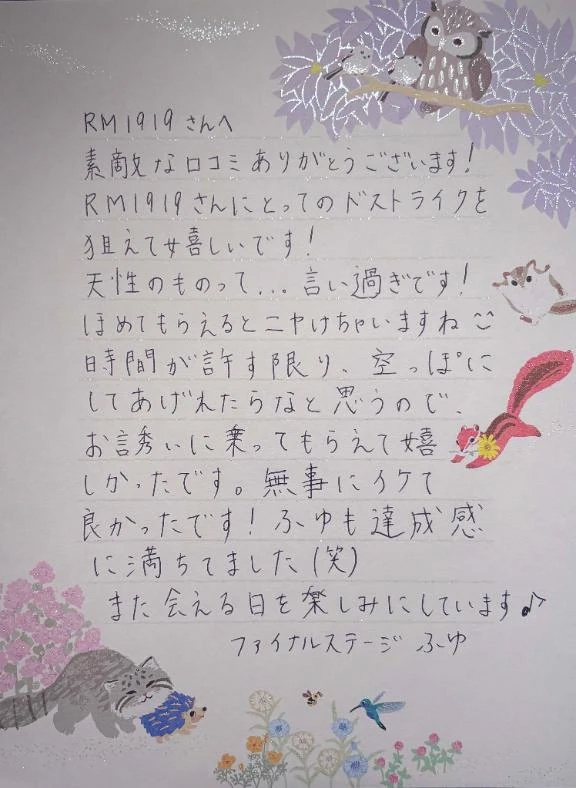 RM1919さんへ
素敵な口コミありがとうございます!
RM1919さんにとってのドストライクを
狙えて嬉しいです!
天性のものって...言い過ぎです!
ほめてもらえるとニヤけちゃいますね
時間が許す限り、空っぽに
してあげれたらなと思うので、
お誘いに乗ってもらえて嬉
しかったです。無事にイケて
良かったです!ふゆも達成感
に満ちてました(笑)
また会える日を楽しみにしています♪
ファイナルステージ ふゆ